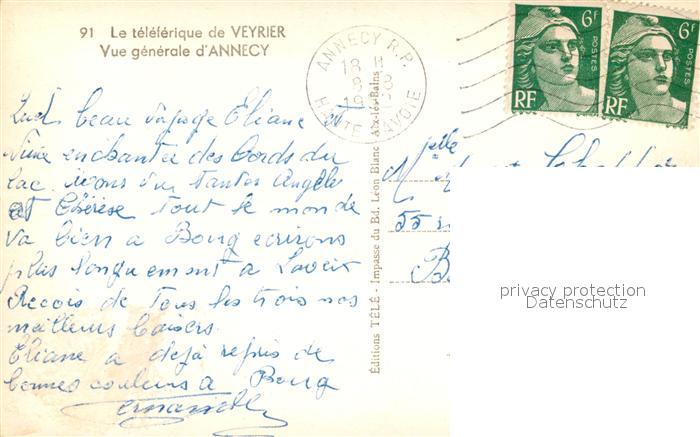 91 Le téléférique de VEYRIER
Vue générale d'ANNECY
6F
POSTES
RF
6F
POSTES
RF
ANNECY R.P.
18 H
HAUTE SAVOIE
beau voyage Eliane et
enchantée des bords du
lac. avons vu tantes Angèle
et Thérèse tout le monde
va bien a Bourg ecrirons
plus longuement a
Recois de tous les trois nos
meilleurs baisers
Eliane a dejà repris de
bonnes couleurs a Bourg
Editions TÉLÉ - Impasse du Bd. Léon Blanc Aix-les-Bains
Melle
55
privacy protection
Datenschutz